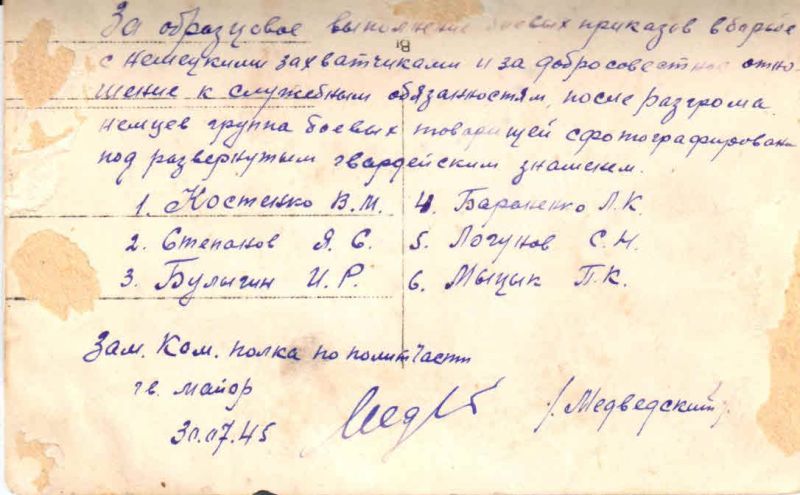 За образцовое выполнение боевых приказов в борьбе
с немецкими захватчиками и за добросовестное отно-
шение к служебным обязанностям, после разгрома
немцев группа боевых товарищей сфотографирован
под развернутым гвардейским знаменем.
1. Костенко В.М. 4. Бароненко Л.К.
2. Степанов Я. С. 5. Логунов С. Н.
3. Булыгин И. Р. 6. Мыцык П.К.
Зам. Ком. полка по политчасти
гв. майор
/. Медведский /.